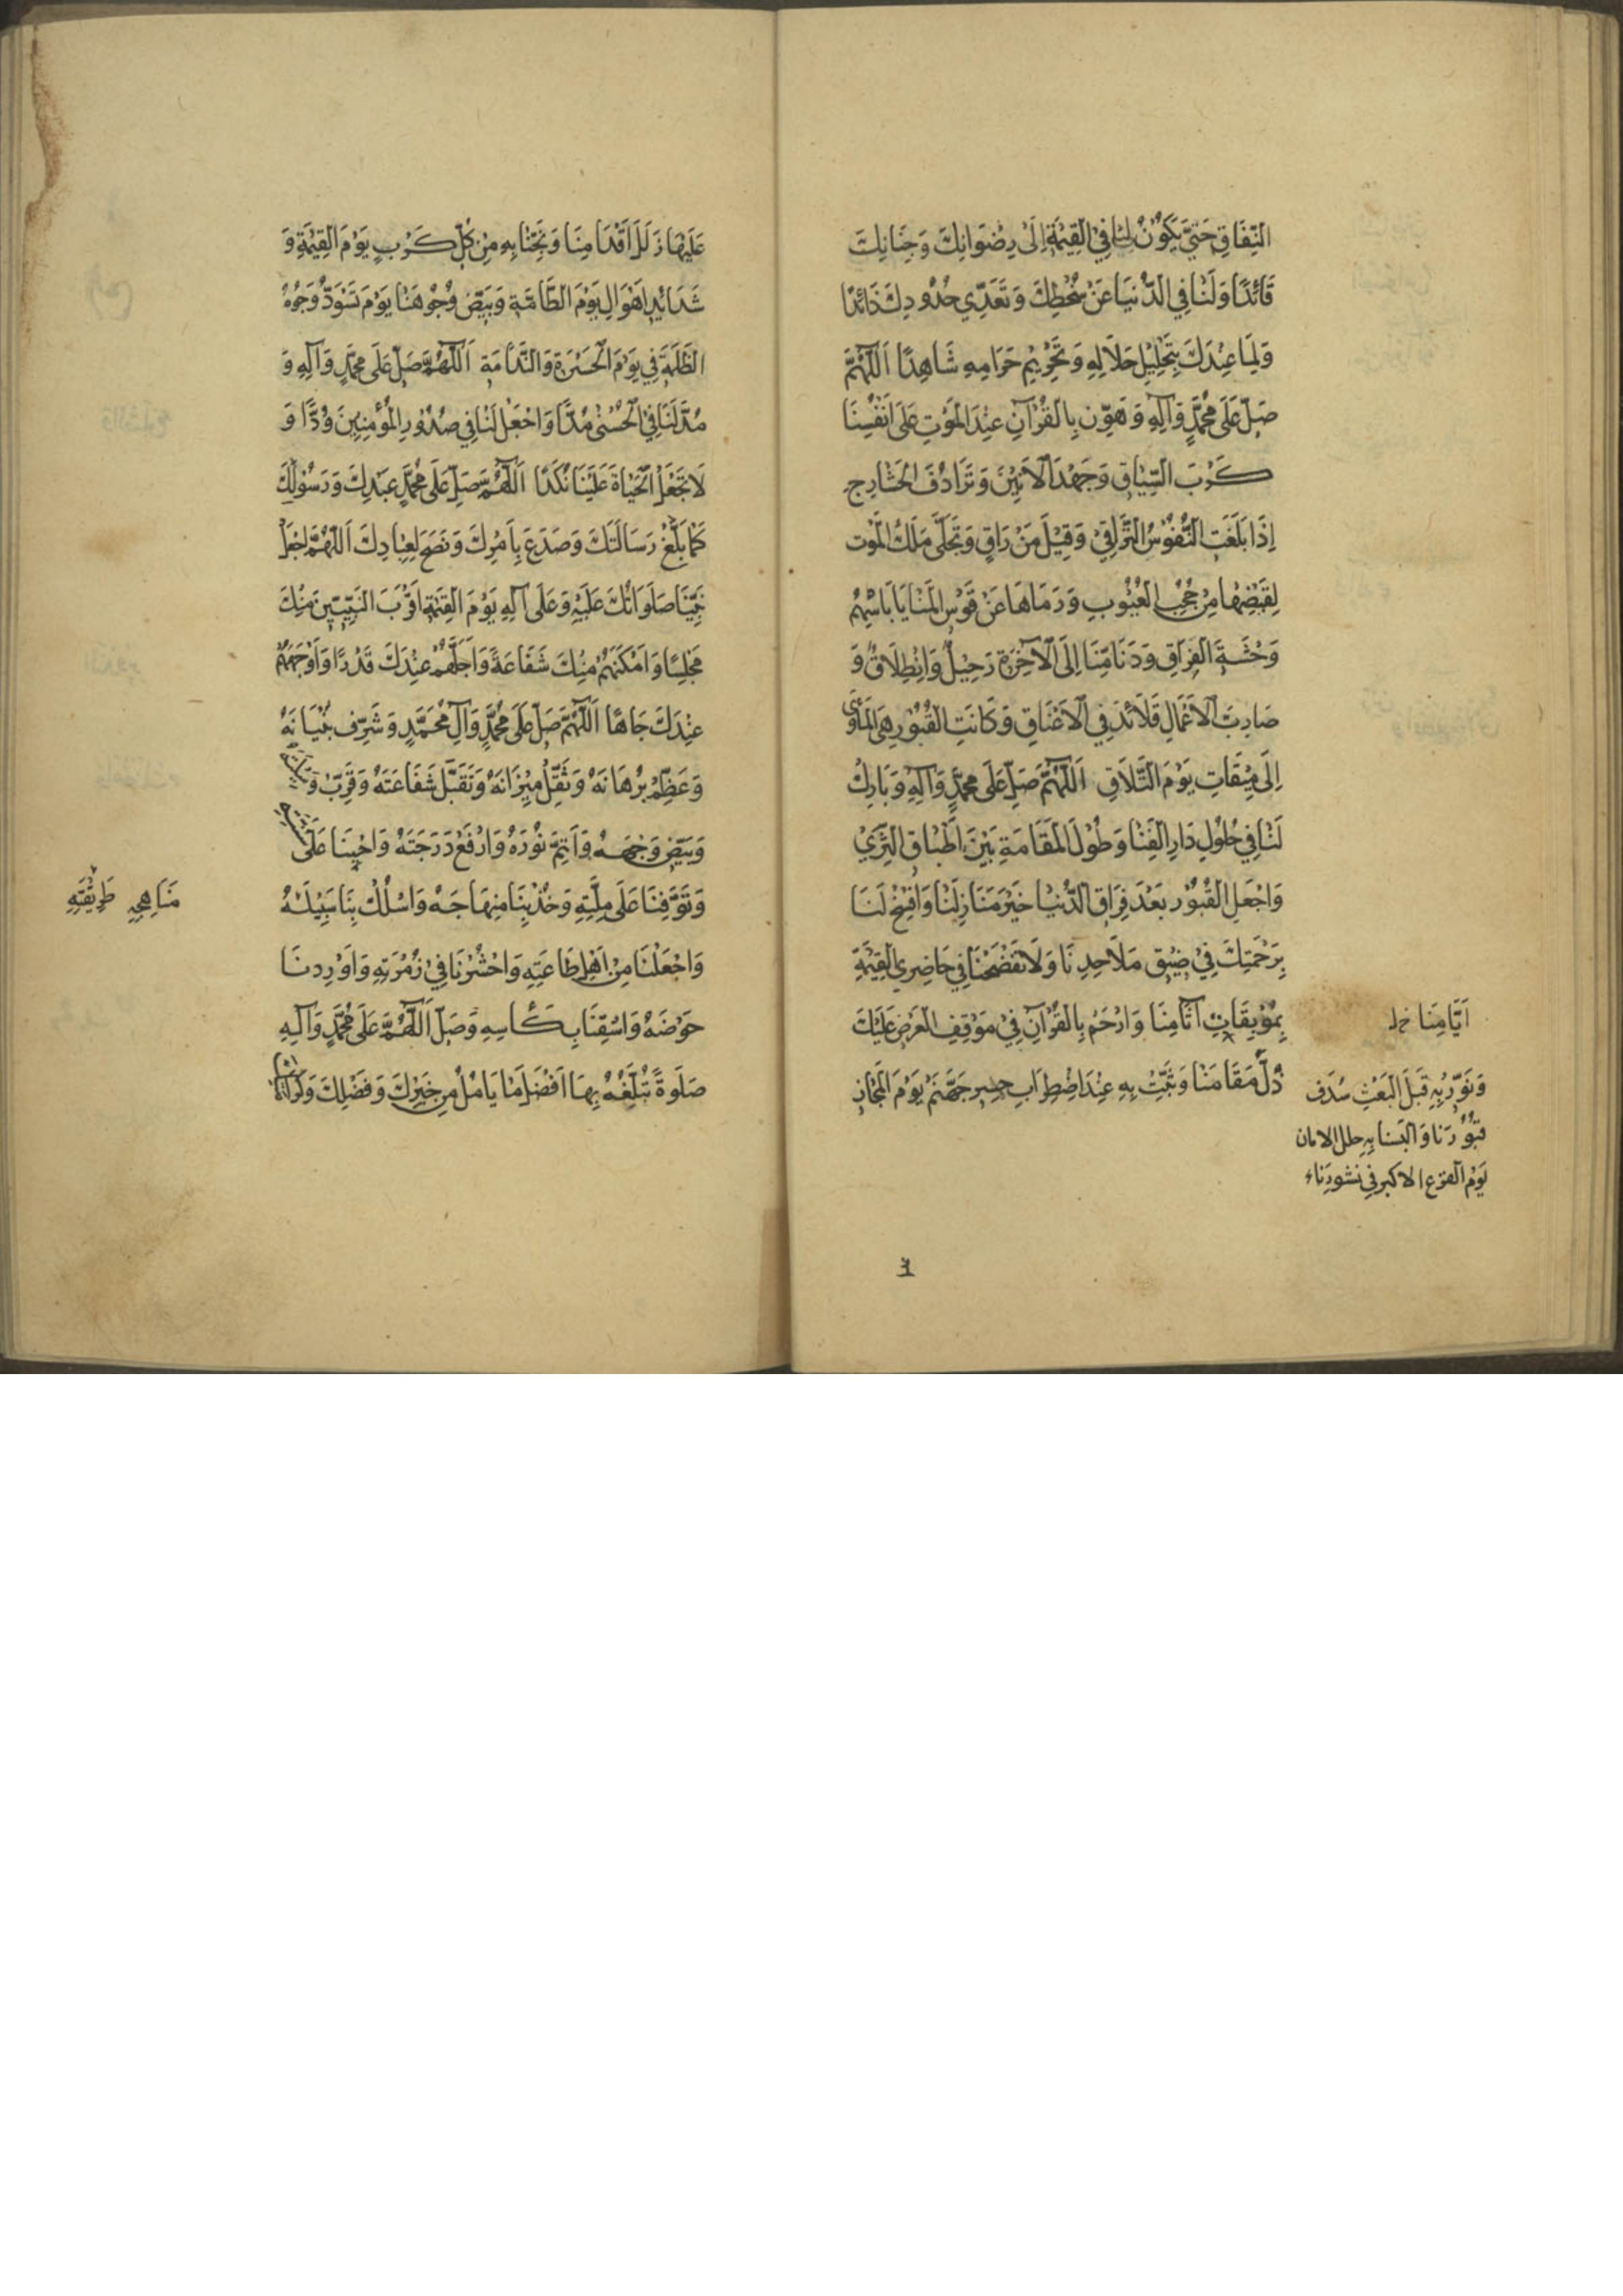 النِّفَاقِ حَتّيٰ يَكُونَ لَنا فِي الْقِيٰمَةِ اِلَىٰ رِضْوَانِكَ وَجِنَانِكَ
قَائِدًا وَلَنَا فِي الدُّنيَا عَنْ سُخْطِكَ وَتَعَدِّي حُدُودِكَ ذَائِدًا
وَلِمَا عِنْدَكَ بِتَحْلِيْلِ حَلاَلِهِ وَتَحْرِيْمِ حَرَامِهِ شَاهِدًا اَللّٰهُمَّ
صَلِّ عَلَى مُحَمَّدٍ وَآلِهِ وَهَوِّن بِالْقُرْآنِ عِنْدَ الْمَوْتِ عَلَى اَنْفُسِنَا
كَرْبَ السِّيَاقِ وَجَهْدَ الْاَنِيْنَ وَتَرَادُفَ الْحَشَارِجِ
اِذَا بَلَغَتِ النُّفُوْسُ التَّرَاقِيْ وَقِيْلَ مَنْ رَاقٍ وَتَجَلَّى مَلَكُ الْمَوْت
لِقَبْضِهَا مِنْ حُجُبِ الْغُيُوبِ وَرَمَاهَا عَنْ قَوْسِ الْمَنَايَا بِاَسْهُمُ
وَحْشَةِ الْفِرَاقِ وَدَنَا مِنَّا اِلَى الْآخِرَةِ رَحِيْلٌ وَانْطِلَاقٌ وَ
صَارَتِ الْاَعْمَالِ قَلَائِدَ فِي الْاَعْنَاقِ وَكَانَتِ الْقُبُوْرِ هِيَ الْمَأْوَى
اِلَى مِيْقَاتِ يَوْمَ التَّلَاقِ اَللّٰهُمَّ صَلِّ عَلَى مُحَمَّدٍ وَآلِهِ وَبَارِكْ
لَنَا فِي حُلُوْلِ دَارِ الْفَنَا وَطُوْلَ الْمَقَامَةِ بَيْنَ اَطْبَاقِ الثَّرَيْ
وَاجْعَلِ الْقُبُوْرَ بَعْدَ فِرَاقِ الدُّنْيَا خَيْرَ مَنَازِلِنَا وَافْسَحْ لَنَا
بِرَحْمَتِكَ فِيْ ضِيْقِ مَلَاحِدِنَا وَلَا تَفْضَحْنَا فِي حَاضِرِي الْقِيٰمَةِ
بِمُوْبِقَاتِ آثَامِنَا وَارْحَمْ بِالْقُرْآنِ فِيْ مَوْقِفِ الْعَرْضِ عَلَيْكَ
ذُلَّ مَقَامِنَا وَثَبِّتْ بِهِ عِنْدَ اضْطِرَابِ جِسِرِ جَهَنَّمَ يَوْمَ الْمَجَازِ
اَيَّامِنَا
وَنَوِّرْ بِهِ قَبْلَ الْبَعْثِ سُدَفَ
قبُوْرِنَا وَالبَسنا بِهِ حلل الامان
يَوْمَ الفزع الاكبر فِي نشورِنَاء
عَلَيْهَا زَلَلَ اَقْدَامِنَا وَنَجِّنَا بِهِ مِنْ كُلِّ كَرْبٍ يَوْمَ الْقِيٰمَةِ وَ
شَدَائِدِ اَهْوَالِ يَوْمَ الطَّامَّةِ وَبَيِّضْ وُجُوْهَنَا يَوْمَ تَسْوَدُّ وُجُوْهُ
الظَّلَمَةِ فِي يَوْمَ الْحَسْرَةِ وَالنَّدَامَةِ اَللّٰهُمَّ صَلِّ عَلَى مُحَمَّدٍ وَآلِهِ وَ
وَاجْعَلْ لَنَا فِي صُدُوْرِ الْمُؤْمِنِيْنَ وُدًّا وَ
لَا تَجْعَلِ الْحَيَاةَ عَلَيْنَا نَكَدًا اَللّٰهُمَّ صَلِّ عَلَى مُحَمَّدٍ عَبْدِكَ وَرَسُوْلِكَ
كَمَا بَلَّغَ رِسَالَتَكَ وَصَدَعَ بِاَمْرِكَ وَنَصَحَ لِعِبَادِكَ اَللّٰهُمَّ اجْعَلْ
نَبِيَّنَا صَلَوَاتُكَ عَلَيْهِ وَعَلَى آلِهِ يَوْمَ الْقِيٰمَةِ اَقْرَبَ النَّبِيِّيْنَ مِنْكَ
مَجْلِسًا وَاَمْكَنَهُمْ مِنْكَ شَفَاعَةً وَاَجَلَّهُمْ عِنْدَكَ قَدْرًا وَاَوْجَهَهُمْ
عِنْدَكَ جَاهًا اَللّٰهُمَّ صَلِّ عَلَى مُحَمَّدٍ وَآلِ مُحَمَّدٍ وَشَرِّفْ بُنْيَانَهُ
وَعَظِّمْ بُرْهَانَهُ وَثَقِّلْ مِيْزَانَهُ وَتَقَبَّلْ شَفَاعَتَهُ وَقَرِّبْ وَسِيْلَتَهُ
وَبَيِّضْ وَجْهَهُ وَاَتِمَّ نُوْرَهُ وَارْفَعْ دَرَجَتَهُ وَاحْيِنَا عَلَى سُنَّتِهِ
وَتَوَفَّنَا عَلَى مِلَّتِهِ وَخُذْ بِنَا مِنْهَاجَهُ وَاسْلُكْ بِنَا سَبِيْلَهُ
مَنَاهِجِهِ طَرِيْقَتِهِ
وَاجْعَلْنَا مِنْ اَهْلِ طَاعَتِهِ وَاحْشُرْنَا فِيْ زُمْرَتِهِ وَاَوْرِدنَا
حَوْضَهُ وَاسْقِنَا بِكَأسِهِ وَصَلِّ اَللّٰهُمَّ عَلَى مُحَمَّدٍ وَآلِهِ
صَلٰوةً تُبَلِّغُهُ بِهَا اَفْضَلَ مَا يَامُلُ مِن خَيْرِكَ وَفَضْلِكَ وَكَرَامَتِكَ